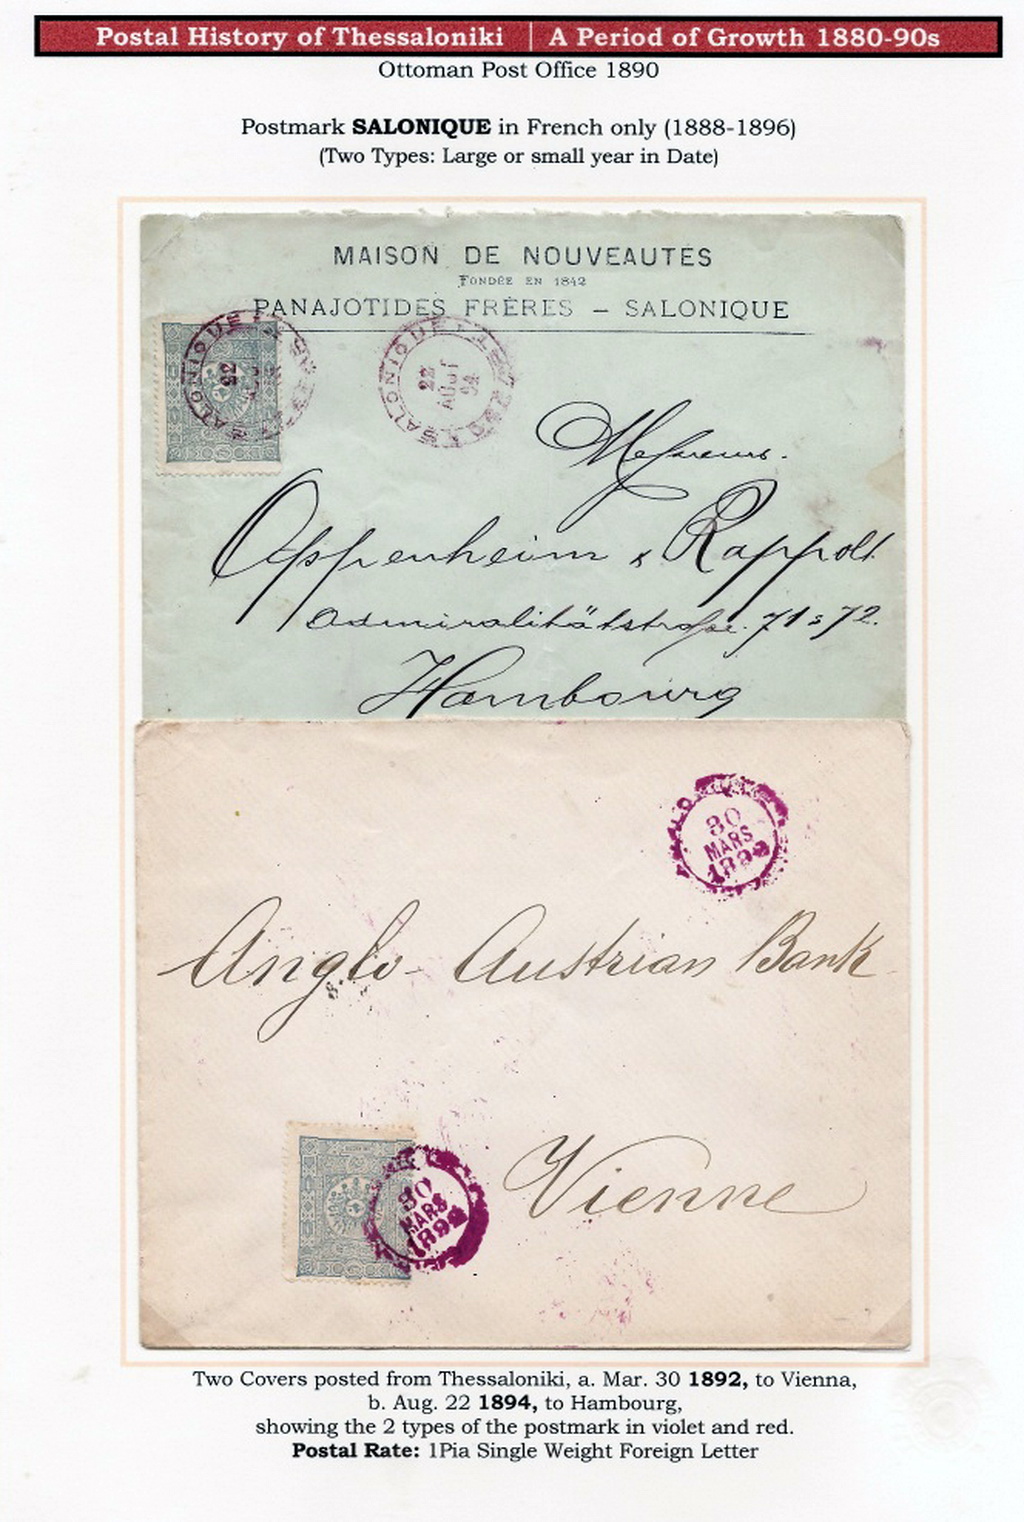 Postal History of Thessaloniki | A Period of Growth 1880-90s
Ottoman Post Office 1890
Postmark SALONIQUE in French only (1888-1896)
(Two Types: Large or small year in Date)
MAISON DE NOUVEAUTÉS
FONDÉE EN 1842
PANAJOTIDES FRÈRES – SALONIQUE
SALONIQUE
22
SALONIQUE
22
AOUT
94
Messieurs.
Oppenheim & Rappolt
Admiralitätstrasse. 71 & 72.
Hambourg
30
MARS
1892
Anglo-Austrian Bank
30
MARS
1892
Vienne
Two Covers posted from Thessaloniki, a. Mar. 30 1892, to Vienna,
b. Aug. 22 1894, to Hambourg,
showing the 2 types of the postmark in violet and red.
Postal Rate: 1Pia Single Weight Foreign Letter